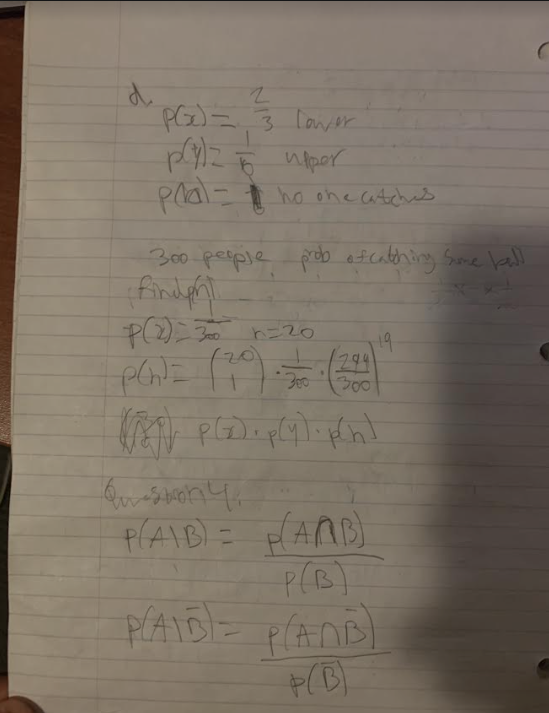 d.
p(x) = 2/3 lower
p(y) = 1/6 upper
p(b) = no one catches
300 people, prob of catching same ball
find p(h)
p(z) = 1/300 n=20
p(h) = (20 1) · 1/300 · (299/300)^19
p(z) · p(y) · p(h)
Question 4.
p(A|B) = p(A∩B) / p(B)
p(A|B̄) = p(A∩B̄) / p(B̄)